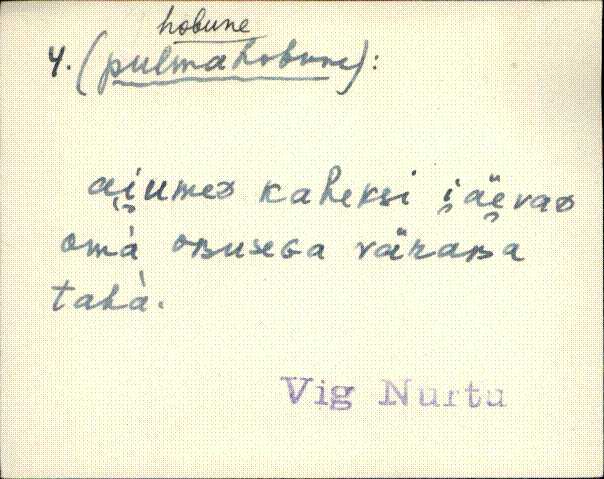 hobune
4. (pulmahobune):
ai̯umeᴅ kaheksi i̯äe̯vaᴅ
omà oʙuseɢa väraʙa
tahà.
Vig Nurtu